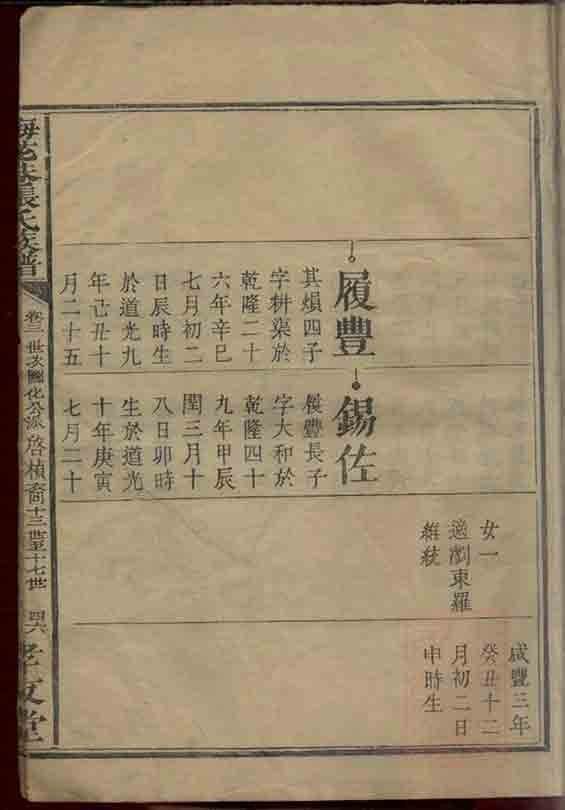 履豐
其熉四子
字耕蕖於
乾隆二十
六年辛巳
七月初二
日辰時生
於道光九
年己丑十
月二十五
錫佐
履豐長子
字大和於
乾隆四十
九年甲辰
閏三月十
八日卯時
生於道光
十年庚寅
七月二十
女一
適瀏東羅
維統
咸豐三年
癸丑十二
月初二日
申時生
張氏族譜
卷三 世次圖化公派啓楨裔十三世至十七世
孝友堂